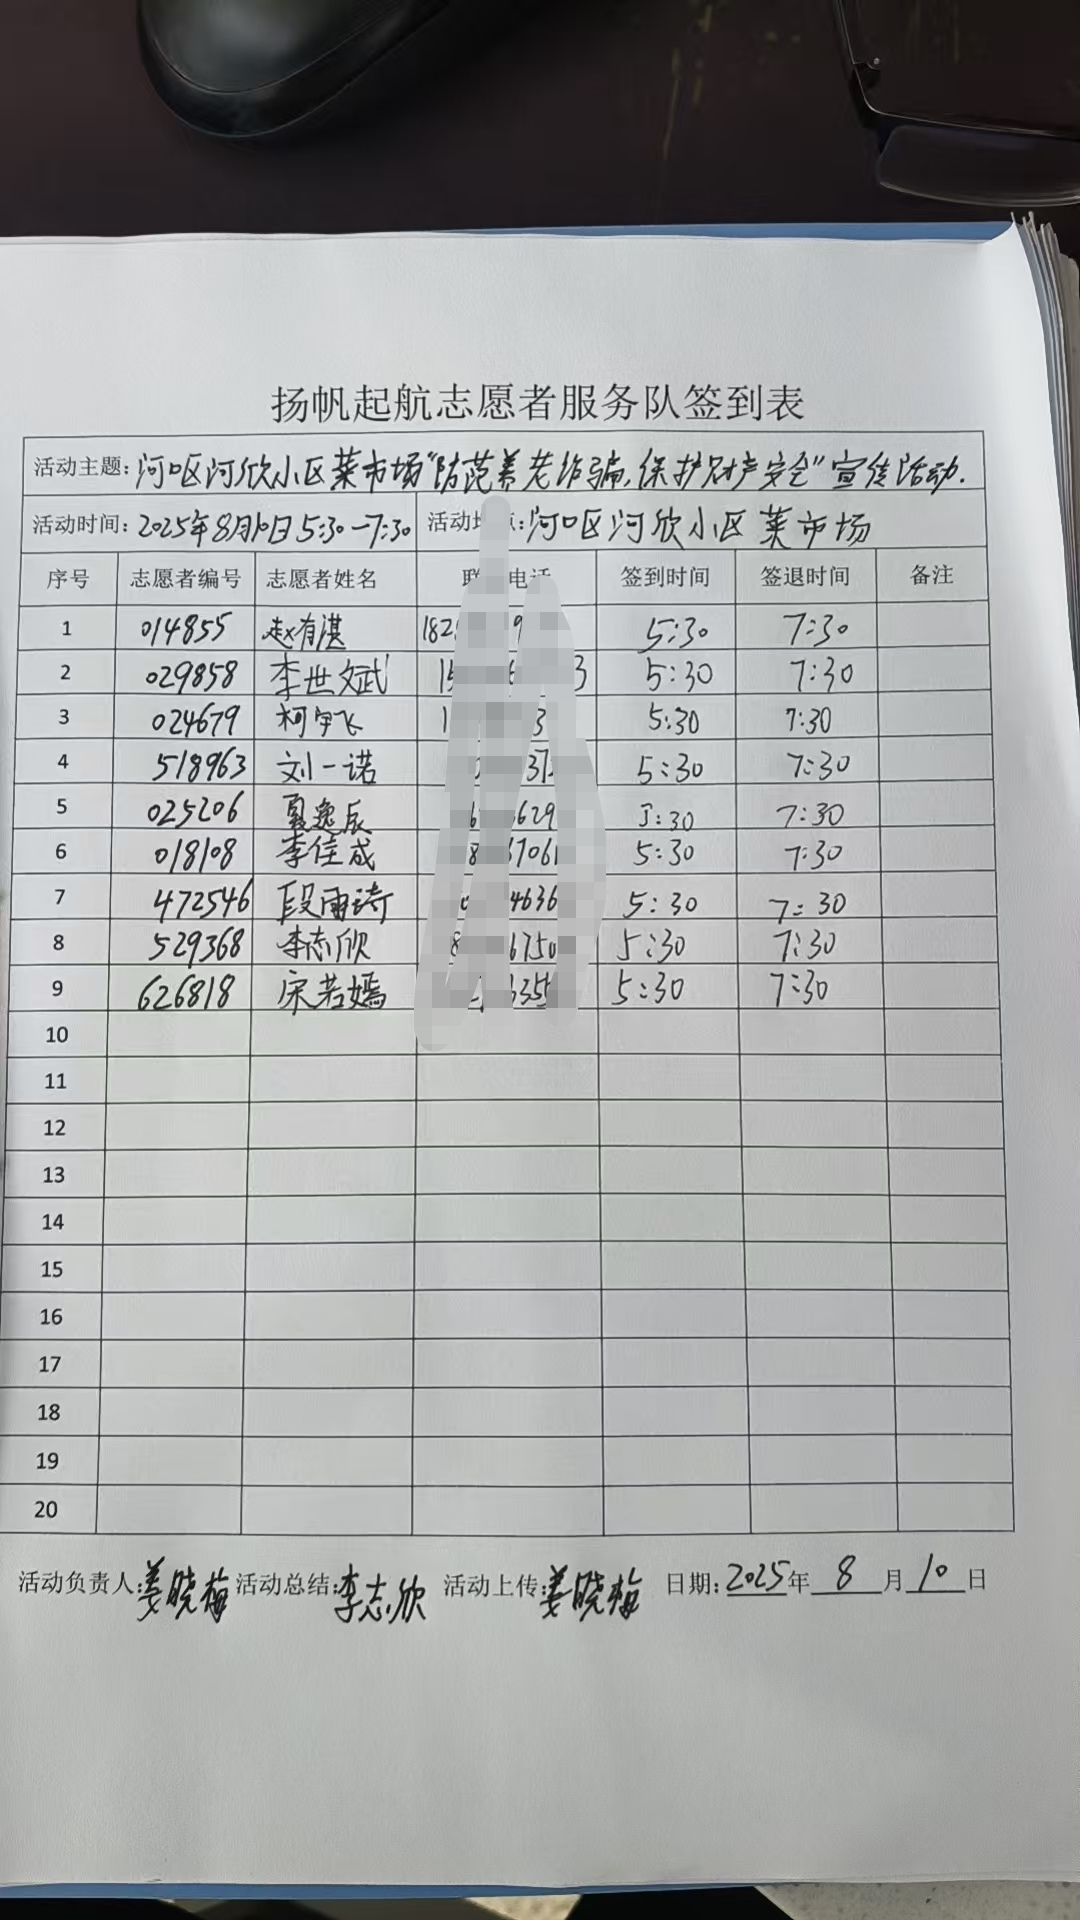 扬帆起航志愿者服务队签到表
活动主题: 河口区河欣小区菜市场"防范养老诈骗,保护财产安全"宣传活动.
活动时间: 2025年8月10日 5:30—7:30 活动地点: 河口区河欣小区菜市场
序号 志愿者编号 志愿者姓名 联 电话 签到时间 签退时间 备注
1 014855 赵有湛 182 9 5:30 7:30
2 029858 李世斌 15 3 5:30 7:30
3 024679 柯宇飞 1 3 5:30 7:30
4 518963 刘一诺 37 5:30 7:30
5 025206 夏逸辰 629 5:30 7:30
6 018108 李佳成 8 7061 5:30 7:30
7 472546 段雨琦 4636 5:30 7:30
8 529368 李志欣 8 6750 5:30 7:30
9 626818 宋若嫣 335 5:30 7:30
10
11
12
13
14
15
16
17
18
19
20
活动负责人:姜晓梅 活动总结:李志欣 活动上传:姜晓梅 日期:2025年 8 月 10 日